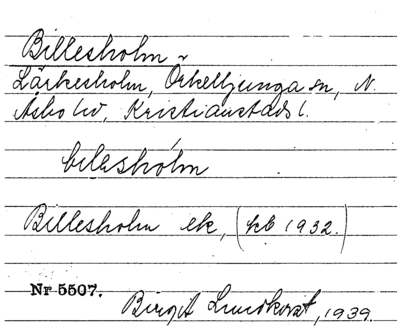 Billesholm ~
Lärkesholm, Örkelljunga sn, N.
Åsbo hd, Kristianstads l.
bilesholm
Billesholm ek, (kb 1932.)
Nr 5507.
Birgit Lundkvist, 1939.